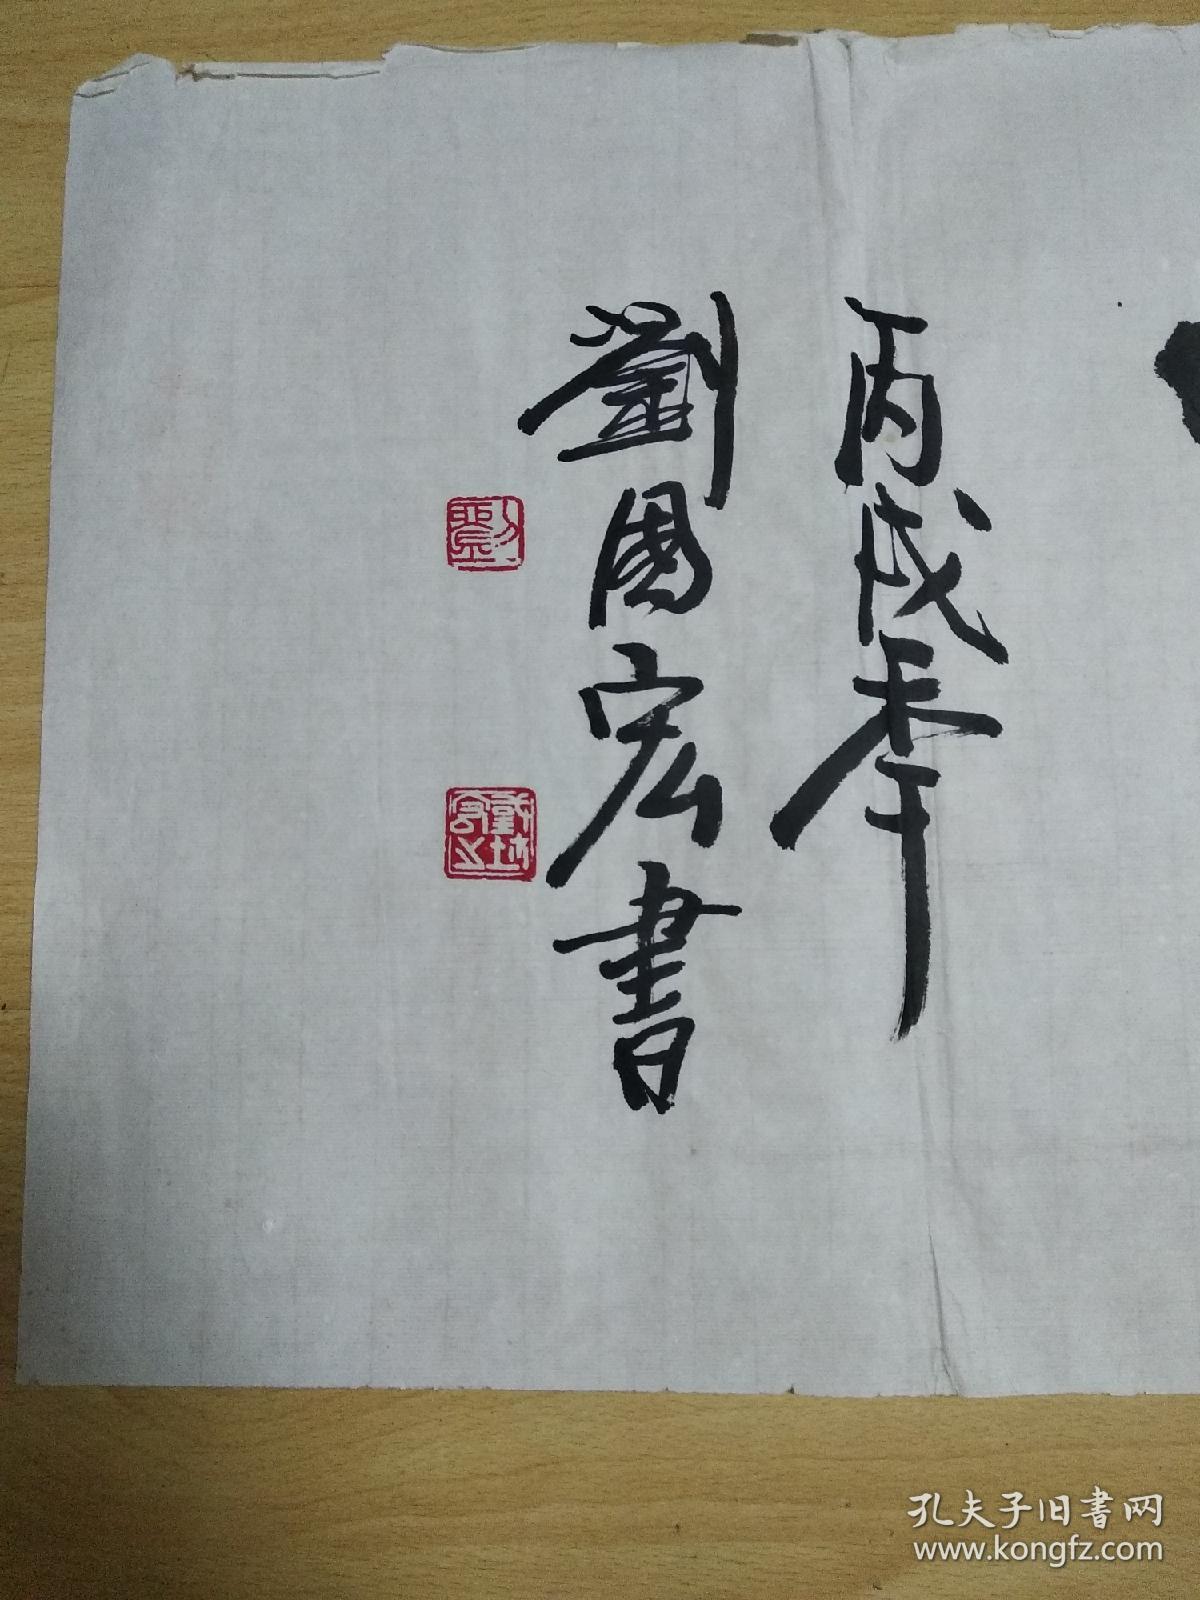 丙戌季
劉國宏書
孔夫子旧书网
www.kongfz.com